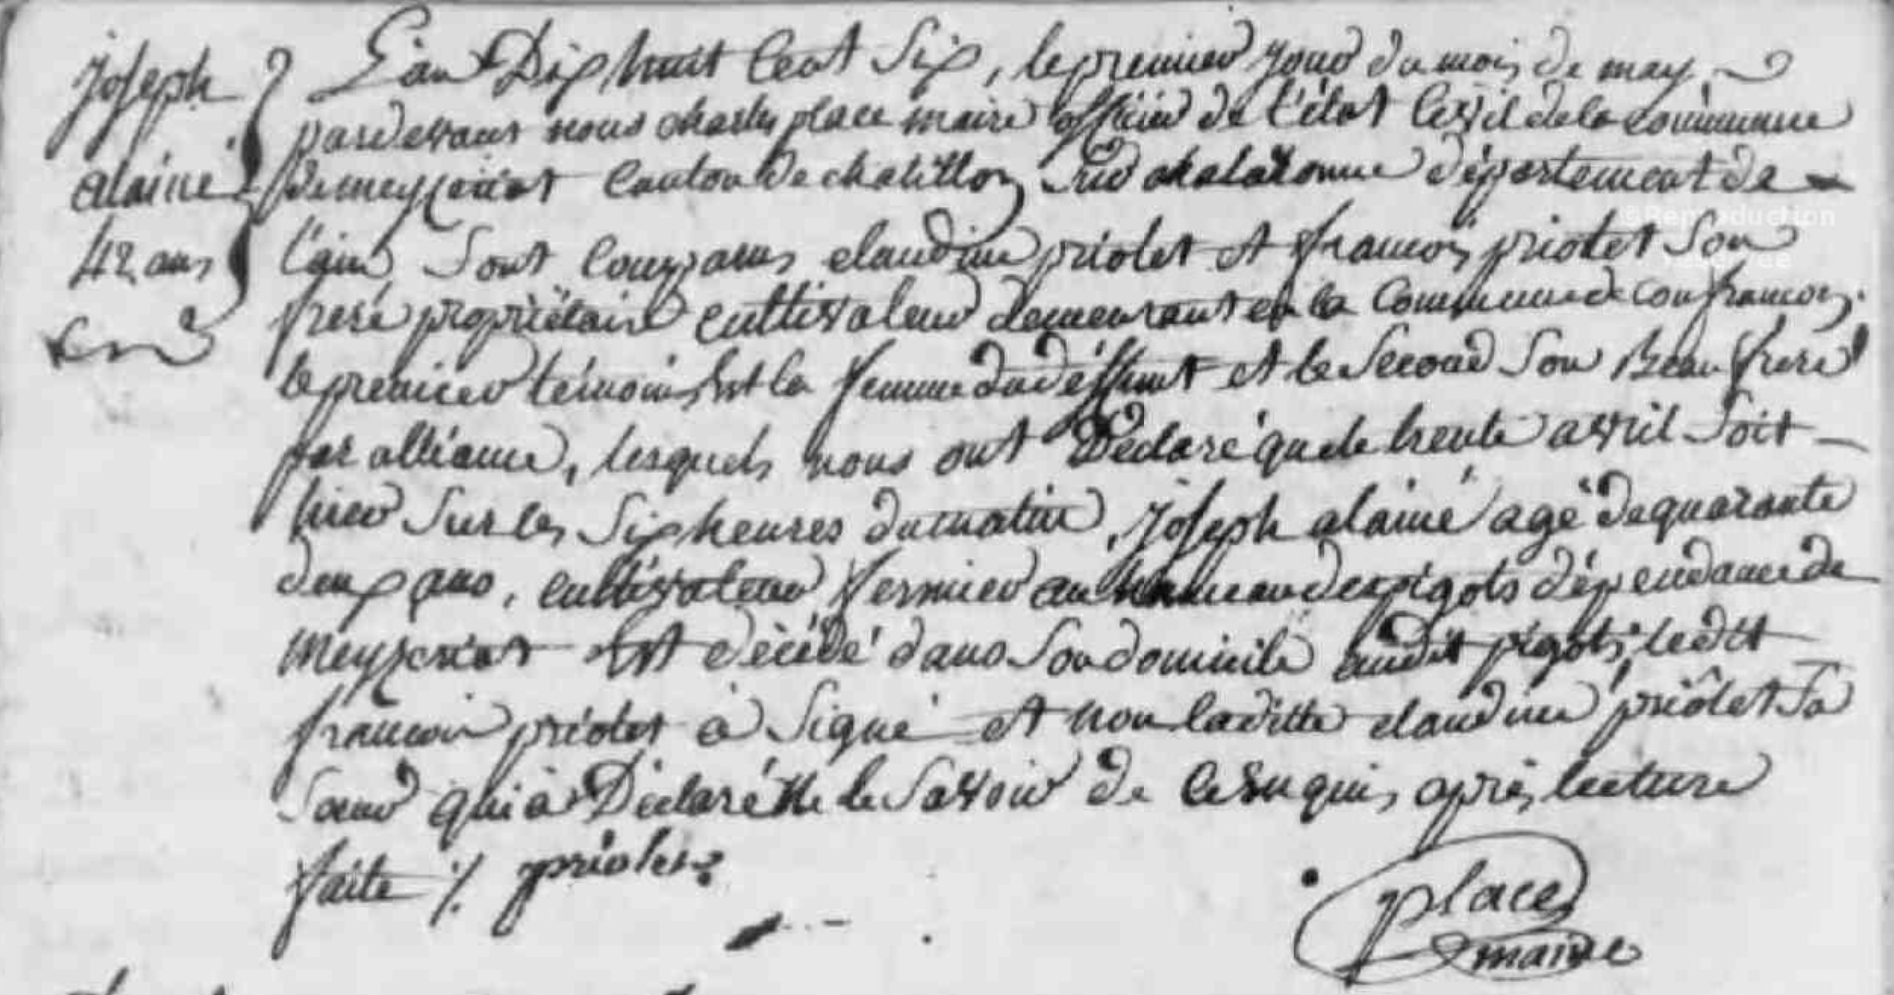 joseph
alainé
42 ans
L'an Dix huit Cent Six, le premier jour du mois de may
pardevant nous charles place maire officier de l'état Civil de la commune
de meyzeriat Canton de chatillon Sur chalaronne département de
l'ain Sont Comparus claudine priolet et francois priolet Son
frere propriétaire cultivateur demeurant en la Commune de confrancon.
le premier témoin Est la femme du déffunt et le Second Son Beau frere
par alliance, lesquels nous ont Déclaré que le trente avril Soit
hier Sur les Six heures du matin, joseph alainé agé de quarante
deux ans, cultivateur fermier au hameau des pigots dépendance de
Meyzeriat Est décédé dans Son domicile audit pigots, ledit
francois priolet à Signé et non laditte claudine priolet Sa
Sœur qui à Déclaré Ne le Savoir de Ce Enquis, après lecture
faite ·/. priolet
place
maire
©Reproduction
réservée